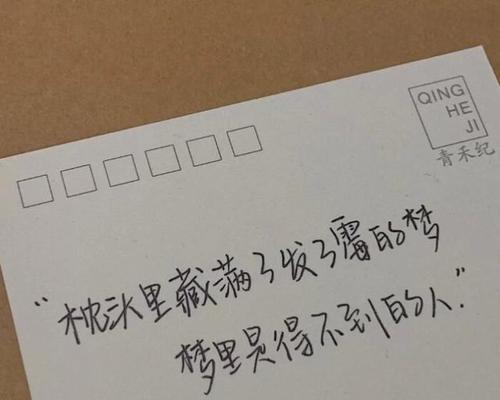 QING
HE
JI
青禾纪
“枕头里藏满了发了霉的梦
梦里是得不到的人.”